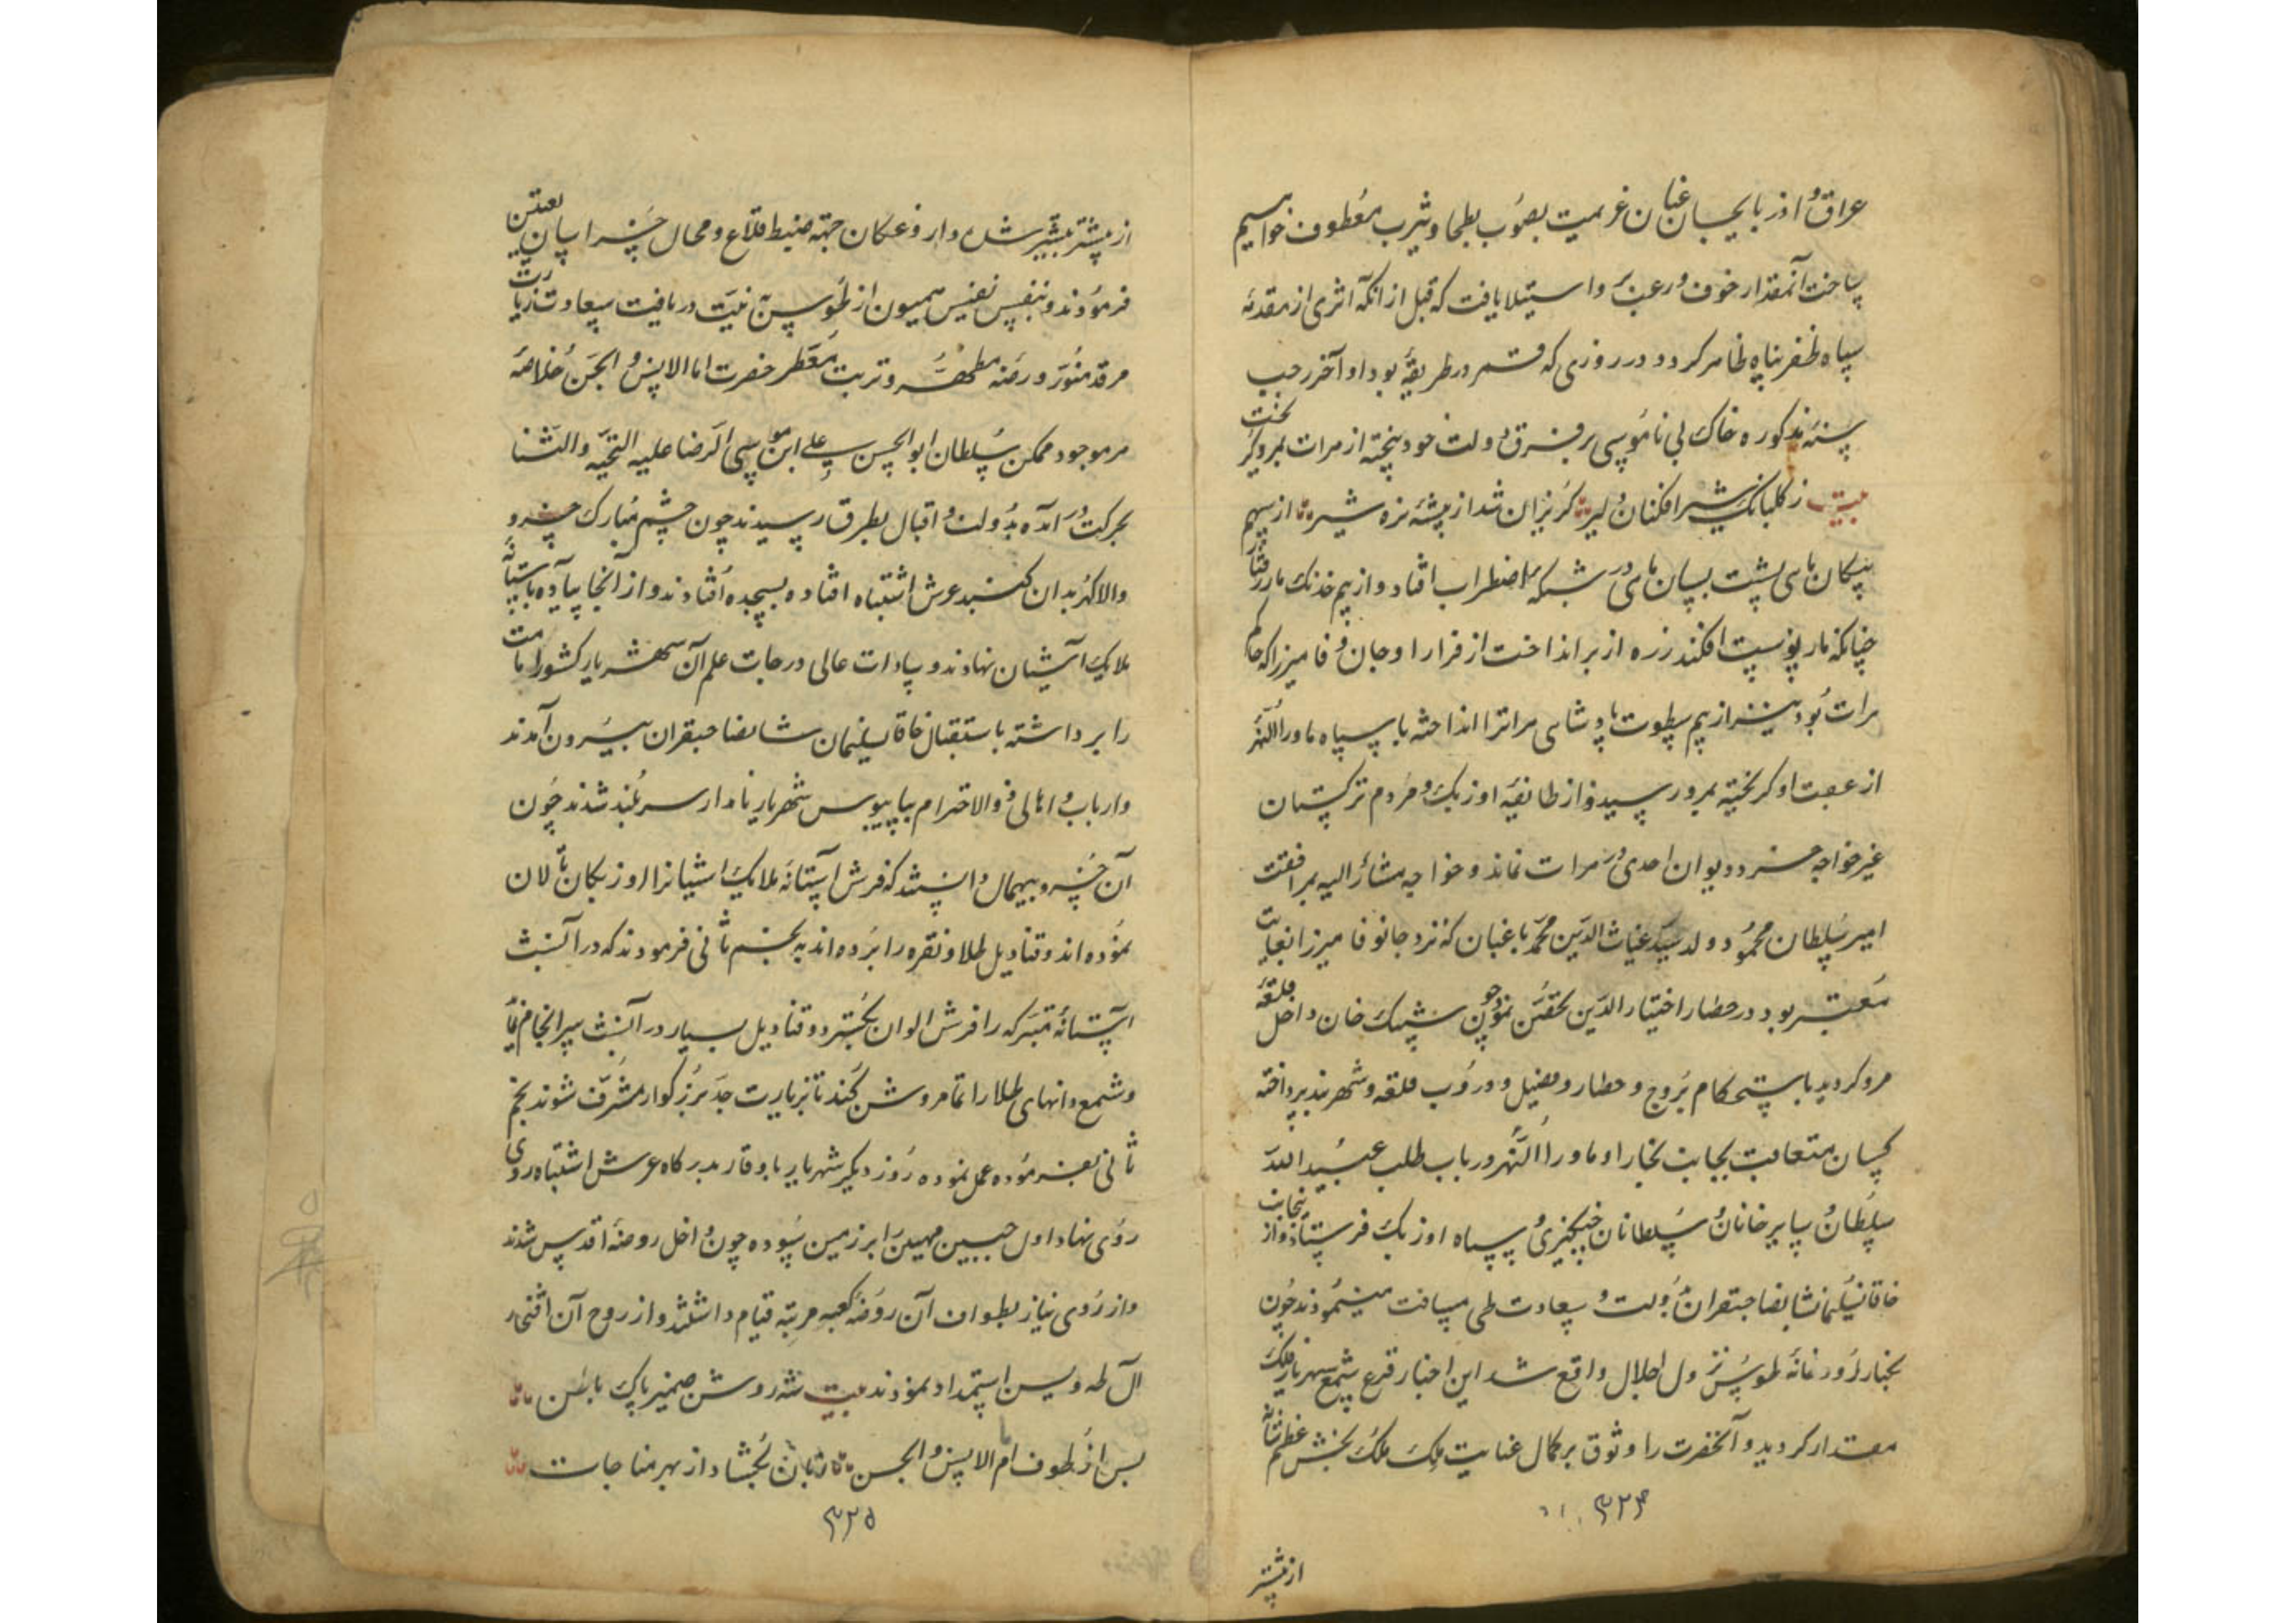 عراق و اذربایجان عنان عزیمت بصوب بطحا و یثرب معطوف خواهیم
ساخت آنمقدار خوف و رعب و استیلا یافت که قبل از انکه اثری از مقدمه
سپاه ظفرپناه ظاهر کردد در روزی که قمر در طریقه بود اواخر رجب
سنه مذکوره خاک بی ناموسی بر فرق دولت خود پیخته از هرات بمرو کریخت
بیت ز کلبانک شیرافکنان دلیر کریزان شد از بیشه نره شیر از سهم
پیکان ماهی پشت بسان ماهی در شبکه اضطراب افتاد و از بیم خدنک مار رفتار
چنانکه مار پوست افکند زره از بر انداخت از فرار او جان وفا میرزا که حاکم
هرات بود نیز از بیم سطوت پادشاهی هراترا انداخته با سپاه ماوراءالنهر
از عقب او کریخته بمرو رسید و از طائفه اوزبک و مردم ترکستان
غیر خواجه خرد دیوان احدی در هرات نماند و خواجه مشارالیه بمرافقت
امیر سلطان محمود ولد سید غیاث الدین محمد باغبان که نزد جانوفا میرزا بغایت
معتبر بود در حصار اختیارالدین تحصن نمود چون شیبک خان داخل قلعه
مرو کردید باستحکام بروج و حصار و فصیل و دروب قلعه و شهربند پرداخته
کسان متعاقب بجانب بخارا و ماوراءالنهر در باب طلب عبیدالله
سلطان و سایر خانان و سلطانان چنکیزی و سپاه اوزبک فرستاد و از انجانب
خاقان سلیمانشان صاحبقران بدولت و سعادت طی مسافت مینمودند چون
بخبار لرود خانه طوس نزول اجلال واقع شد این اخبار قرع سمع شهریار فلک
مقتدار کردید و آنحضرت را وثوق بر کمال عنایت ملک ملک بخش عظم شانه
۳۲۴
از پیشتر
از پیشتر بیشتر شد و داروغکان جهة ضبط قلاع و محال خراسان تعیین
فرمودند و بنفس نفیس همیون از طوس به نیت دریافت سعادت زیارت
مرقد منور و روضه مطهر و تربت معطر حضرت امام الانس و الجن خلاصه
هر موجود ممکن سلطان ابوالحسن علی ابن موسی الرضا علیه التحیه والثنا
بحرکت در آمده بدولت و اقبال بطرق رسیدند چون چشم مبارک خسرو
والا کهر بدان کنبد عرش اشتباه افتاده بسجده افتادند و از آنجا پیاده باستانه
ملایک آشیان نهادند و سادات عالی درجات علم آن شهریار کشور امامت
را برداشته باستقبال خاقان سلیمان شان صاحبقران بیرون آمدند
و ارباب و اهالی ذوالاحترام بپایبوس شهریار نامدار سربلند شدند چون
آن خسرو بیهمال دانست که فرش آستانه ملایک اشیانرا اوزبکان تالان
نموده اند و قنادیل طلا و نقره را برده اند به نجم ثانی فرمودند که در آنشب
آستانه متبرکه را فرش الوان بکسترد و قنادیل بسیار در آنشب سرانجام نماید
و شمع دانهای طلا را تمام روشن کند تا بزیارت جد بزرکوار مشرف شوند نجم
ثانی بفرموده عمل نموده روز دیکر شهریار باوقار بدرکاه عرش اشتباه روی
روی نهاد اول جبین مهین را بر زمین سوده چون داخل روضه اقدس شدند
و از روی نیاز بطواف آن روضه کعبه مرتبه قیام داشتند و از روح آن افتخار
آل طه و یس استمداد نمودند بیت شه روشن ضمیر پاک باطن
پس از طوف امام الانس والجن زبان بکشاد از بهر مناجات
۳۲۵